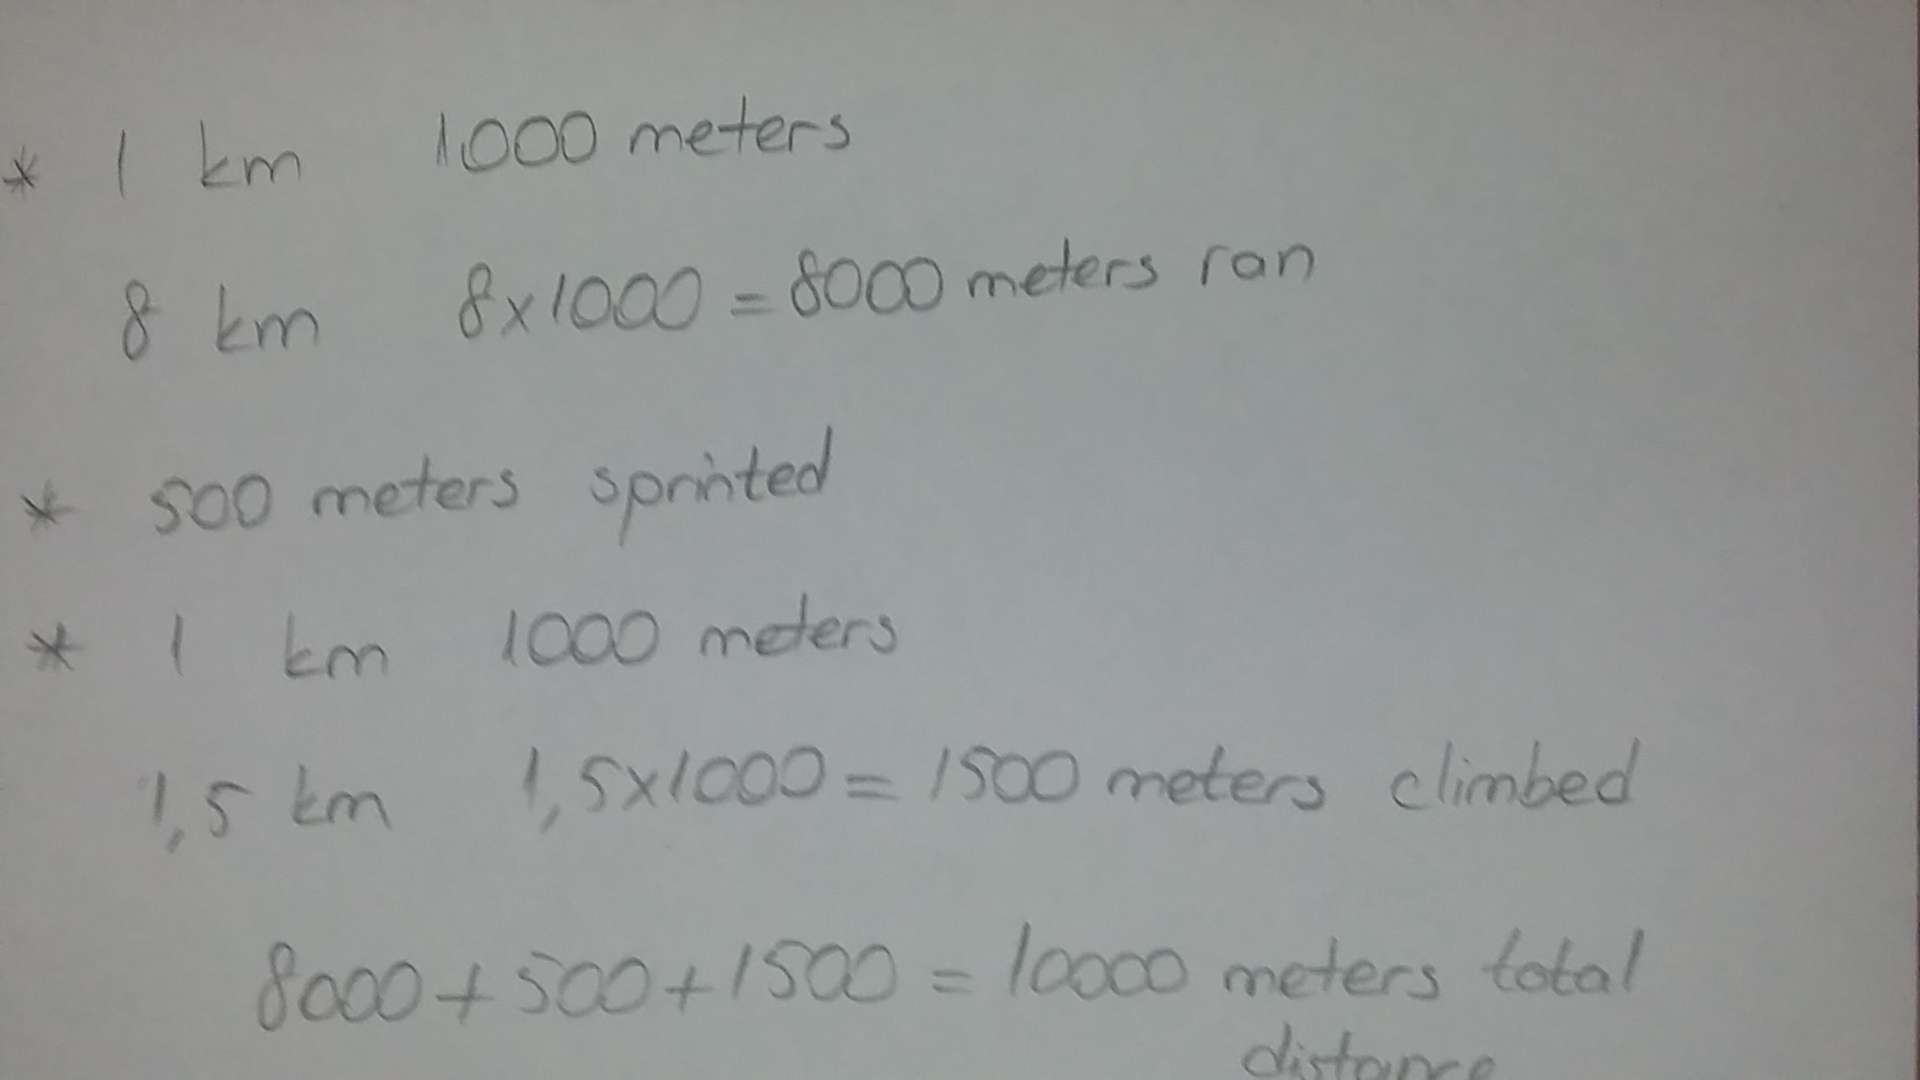 * 1 km 1000 meters
8 km 8x1000 = 8000 meters ran
* 500 meters sprinted
* 1 km 1000 meters
1,5 km 1,5x1000 = 1500 meters climbed
8000 + 500 + 1500 = 10000 meters total
distance